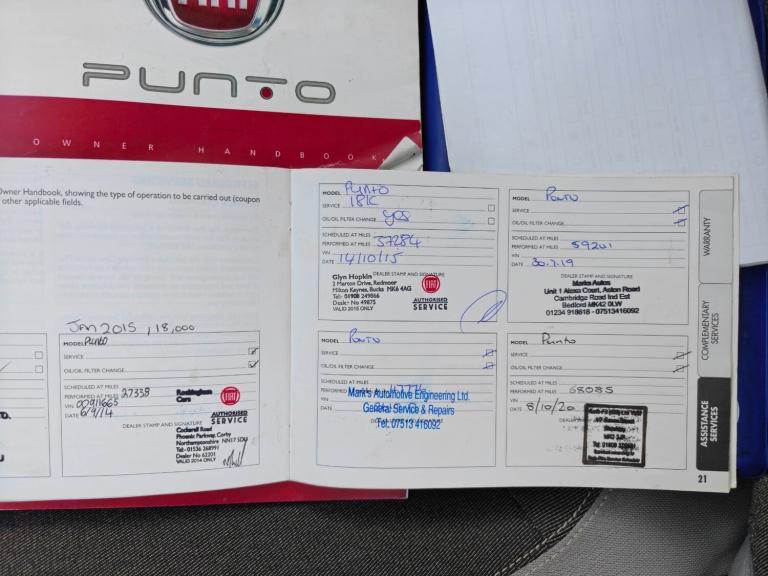 FIAT
PUNTO
OWNER HANDBOOK
Owner Handbook, showing the type of operation to be carried out (coupon
other applicable fields.
Jan 2015, 18,000
MODEL Punto
SERVICE
OIL/OIL FILTER CHANGE
SCHEDULED AT MILES
PERFORMED AT MILES 27338
VIN 00911665
DATE 6/9/14
DEALER STAMP AND SIGNATURE
Rockingham
Cars
FIAT
AUTHORISED
SERVICE
Cockerell Road
Phoenix Parkway, Corby
Northamptonshire NN17 5DU
Tel:- 01536 268991
Dealer No 62201
VALID 2014 ONLY
MODEL Punto
SERVICE 18K
OIL/OIL FILTER CHANGE yes
SCHEDULED AT MILES
PERFORMED AT MILES 37284
VIN
DATE 14/10/15
DEALER STAMP AND SIGNATURE
Glyn Hopkin
2 Merton Drive, Redmoor
Milton Keynes, Bucks MK6 4AG
Tel:- 01908 249866
Dealer No 49875
VALID 2015 ONLY
FIAT
AUTHORISED
SERVICE
MODEL Punto
SERVICE
OIL/OIL FILTER CHANGE
SCHEDULED AT MILES
PERFORMED AT MILES
VIN
DATE
DEALER STAMP AND SIGNATURE
Mark's Automotive Engineering Ltd.
General Service & Repairs
Tel: 07513 416092
MODEL Punto
SERVICE
OIL/OIL FILTER CHANGE
SCHEDULED AT MILES
PERFORMED AT MILES 59201
VIN
DATE 30.7.19
DEALER STAMP AND SIGNATURE
Marks Autos
Unit 1 Alexa Court, Aston Road
Cambridge Road Ind Est
Bedford MK42 0LW
01234 918618 - 07513416092
MODEL Punto
SERVICE
OIL/OIL FILTER CHANGE
SCHEDULED AT MILES
PERFORMED AT MILES 68085
VIN
DATE 8/10/20
DEALER STAMP AND SIGNATURE
WARRANTY
COMPLEMENTARY
SERVICES
ASSISTANCE
SERVICES
21